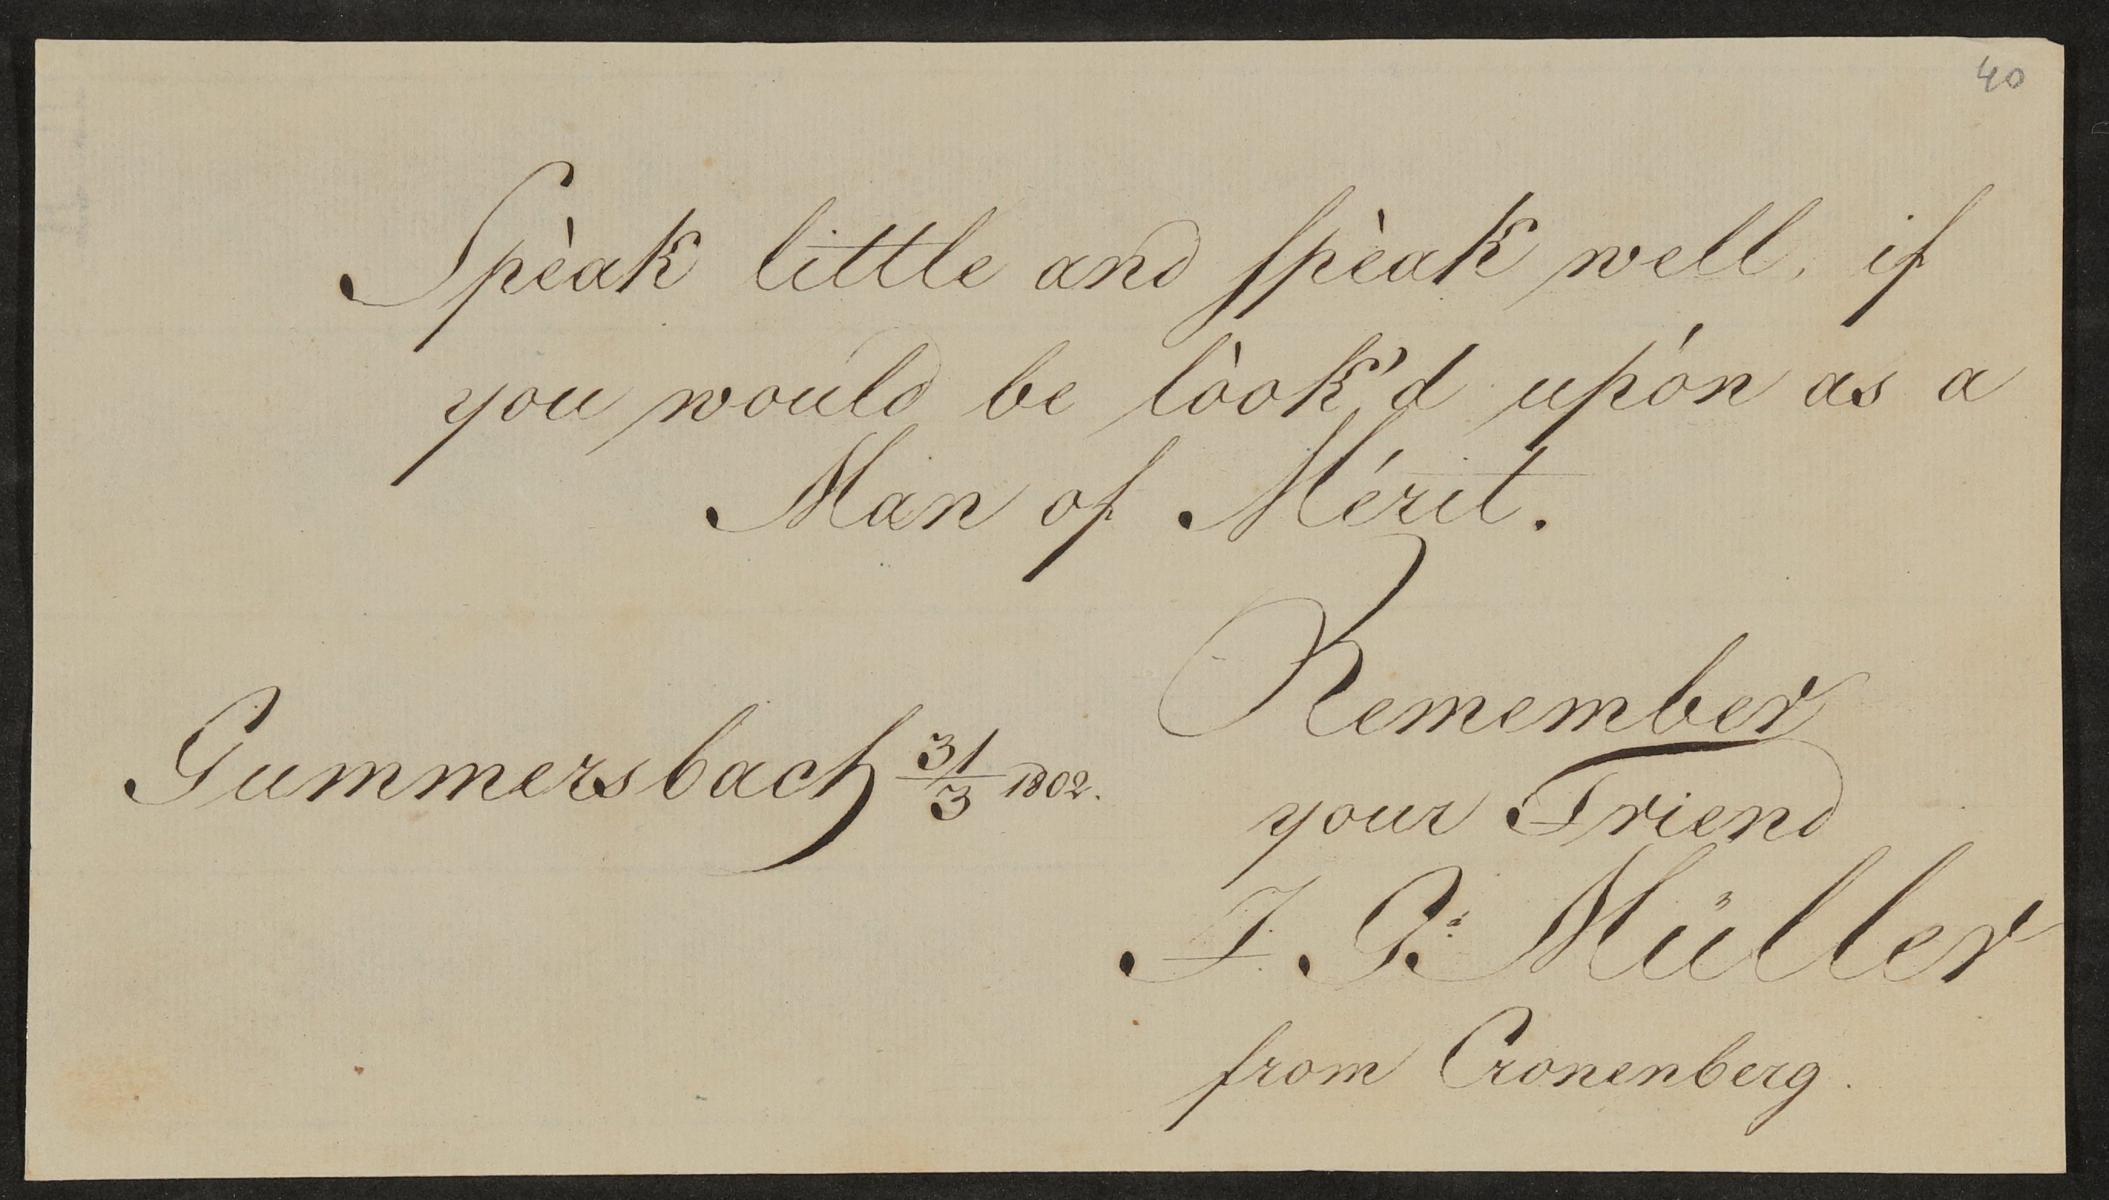 40
Spèak little and ſpèak well, if
you would be lòok'd upón as a
Man of Mérit.
Remember
Gummersbach 31/3 1802.
your Friend
J. G: Müller
from Cronenberg.